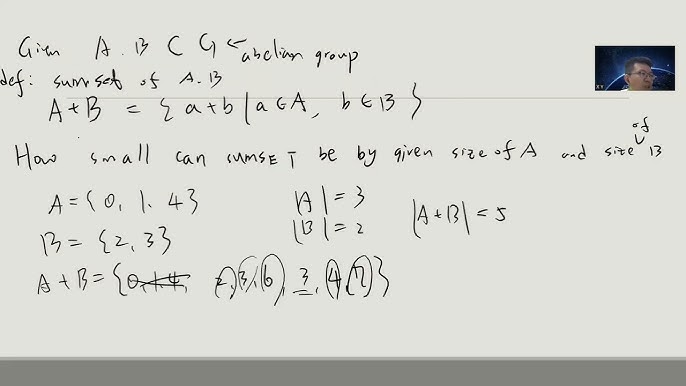 Given A. B ⊂ G ← abelian group
def: sumset of A.B
A+B = { a+b | a ∈ A, b ∈ B }
How small can sumset be by given size of A and size of B
A = { 0, 1. 4 } |A| = 3
B = { 2, 3 } |B| = 2 |A+B| = 5
A+B = { 0,1,4, 2,3,6, 3, 4,7 }